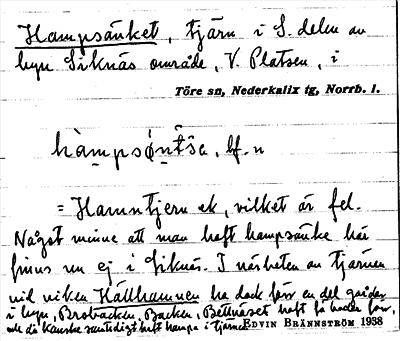 Hampsänket, tjärn i S. delen av
byn Siknäs område, V. Platsen, i
Töre sn, Nederkalix tg, Norrb. l.
hampsøntsa, bf. n
= Hamntjern ek, vilket är fel.
Något minne att man haft hampsänke här
finns nu ej i Siknäs. I närheten av tjärnen
vid viken Hällhamnen ha dock förr en del gårdar
i byn, Brobacken, Backen, Bettnäset haft så boder förr,
och de kanske samtidigt haft hampa i tjärnen
EDVIN BRÄNNSTRÖM 1938